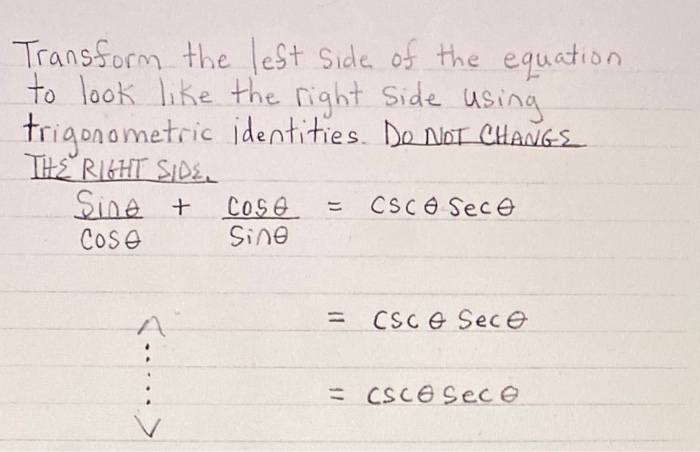 Transform the left side of the equation
to look like the right side using
trigonometric identities. DO NOT CHANGE
THE RIGHT SIDE.
sinθ/cosθ + cosθ/sinθ = cscθ secθ
= cscθ secθ
= cscθ secθ